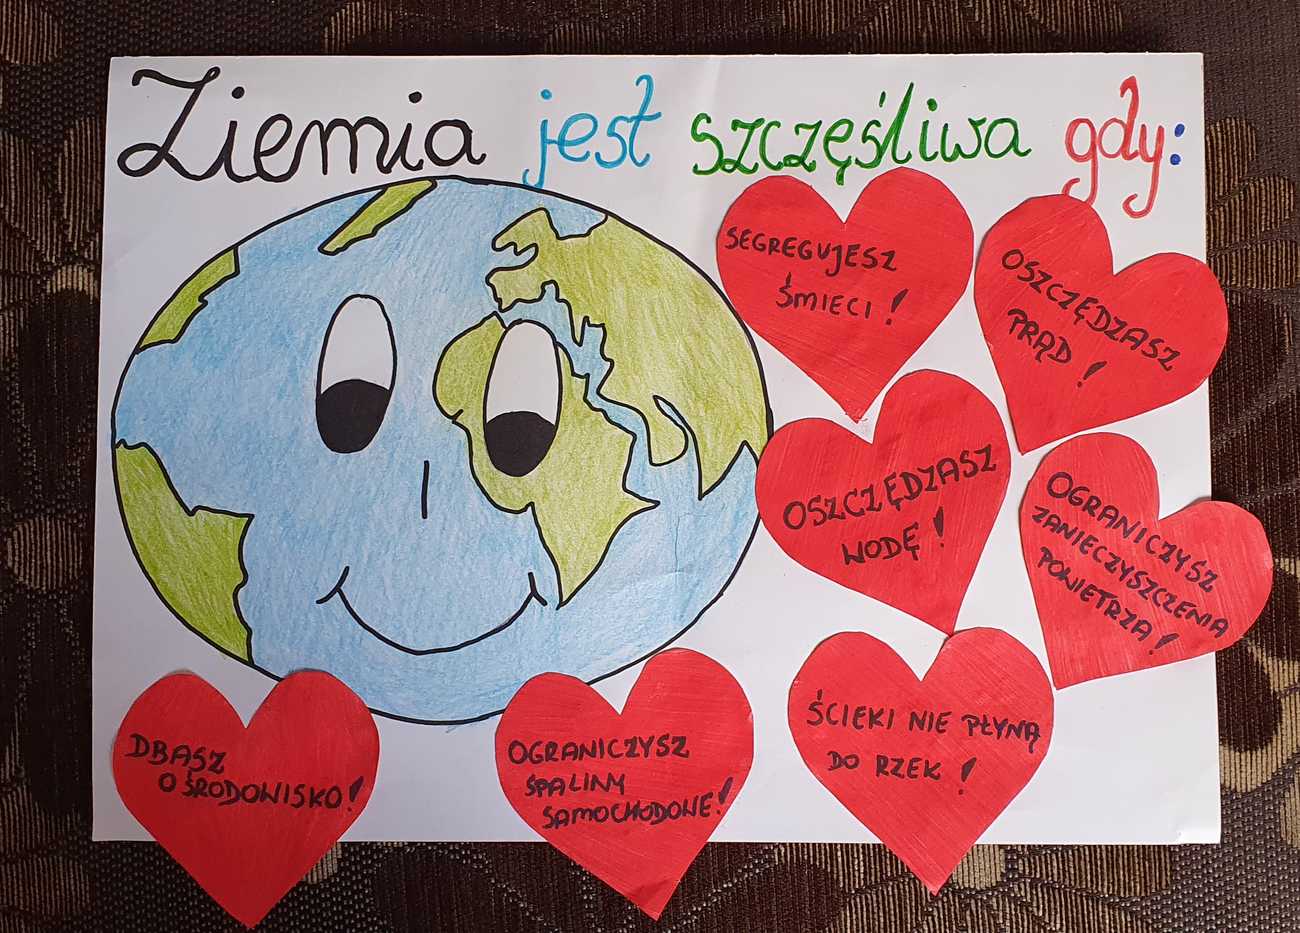 Ziemia jest szczęśliwa gdy:
SEGREGUJESZ
ŚMIECI!
OSZCZĘDZASZ
PRĄD!
OSZCZĘDZASZ
WODĘ!
OGRANICZYSZ
ZANIECZYSZCZENIA
POWIETRZA!
DBASZ
O ŚRODOWISKO!
OGRANICZYSZ
SPALINY
SAMOCHODOWE!
ŚCIEKI NIE PŁYNĄ
DO RZEK!